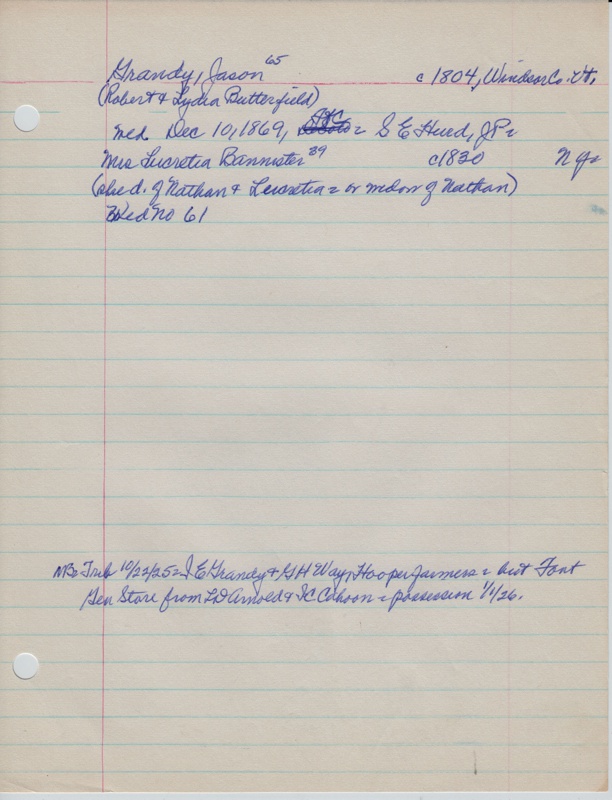 Grandy, Jason 65 c 1804, Windsor Co. Vt,
(Robert & Lydia Butterfield)
med Dec 10, 1869, = S E Hurd, JP =
Mrs Lucretia Bannister 39 c1830 N Y =
(she d. of Nathan & Lucretia = or widow of Nathan)
No 61
NB = Trib 10/22/25 = J E Grandy & G H Way, Hooper farmers = bot Font
Gen Store from L D Arnold & I C Cohoon = possession 1/1/26.